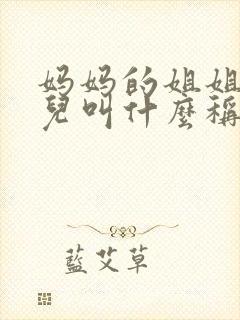 妈妈的姐姐
兒叫什麼稱
藍艾草